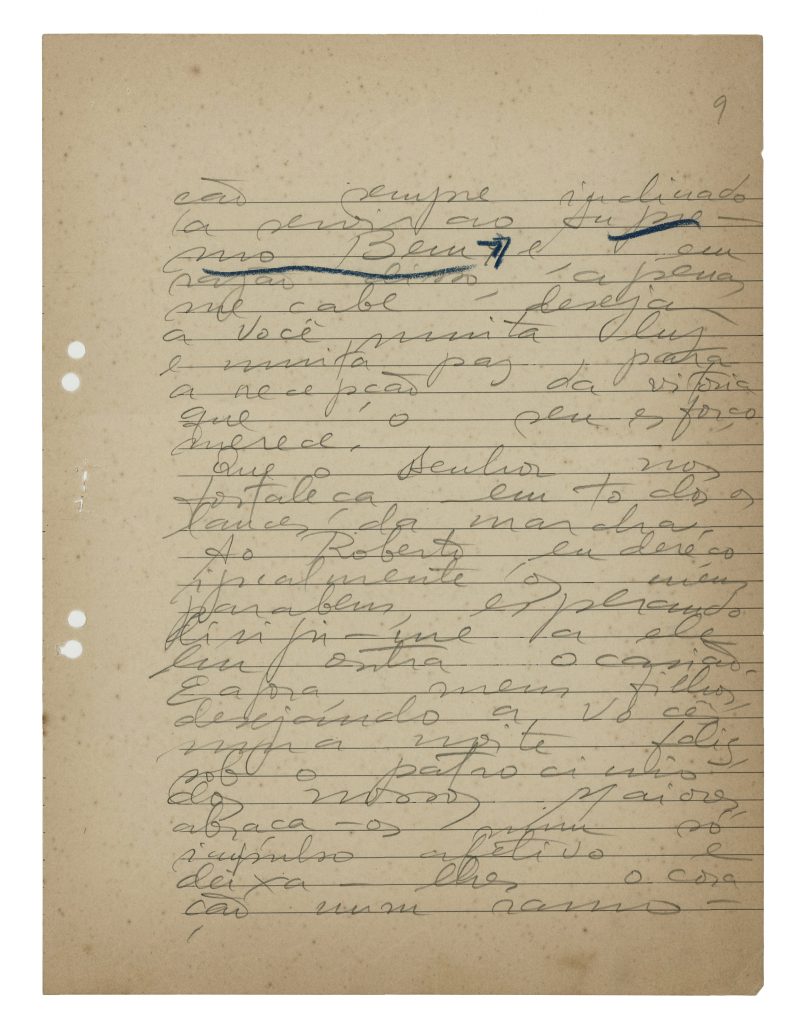 9
ção sempre inclinado
a servir ao Supre-
mo Bem, e em
razão disso, apenas
me cabe desejar
a você muita luz
e muita paz, para
a recepção da vitória
que o seu esforço
merece.
Que o Senhor nos
fortaleça em todos os
lances da marcha.
Ao Roberto, endereço
igualmente os meus
parabens, esperando
dirigir-me a ele
em outra ocasião.
E agora meus filhos,
desejando a vocês
uma noite feliz
sob o patrocinio
dos nossos Maiores,
abraça-os num só
impulso afetivo e
deixa-lhes o cora
ção num ramo-